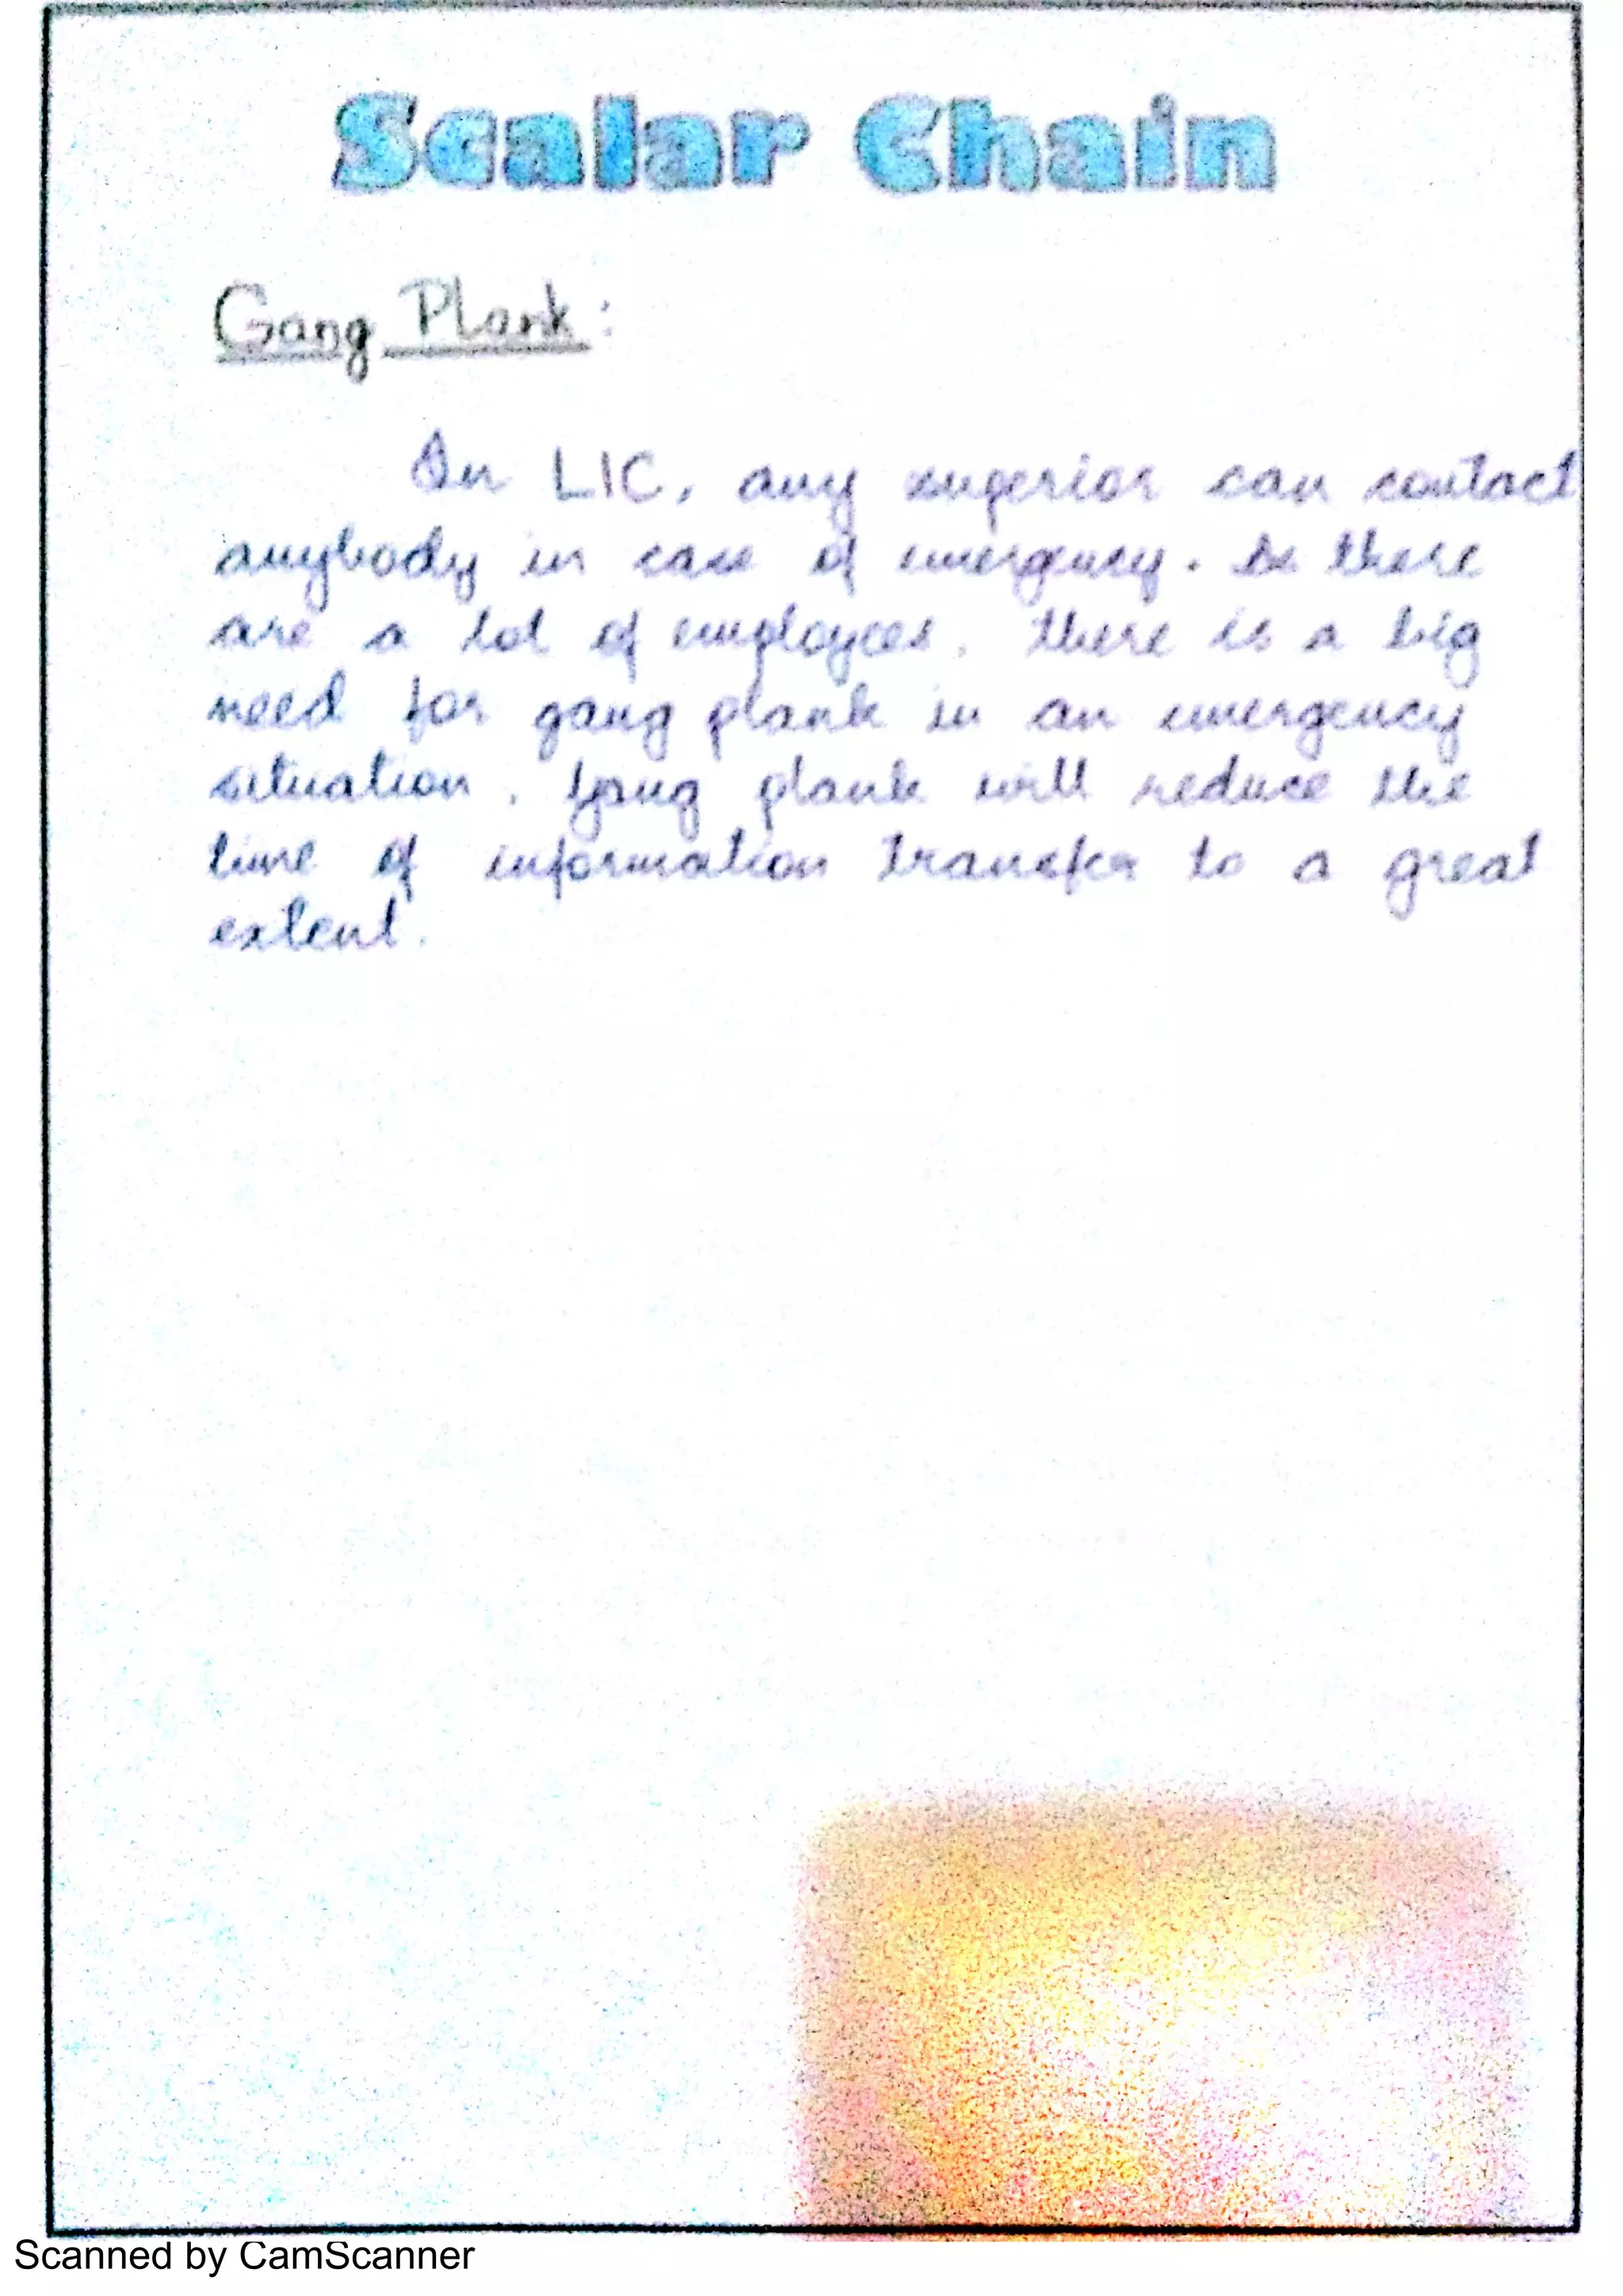 Scalar Chain
Gang Plank:
In LIC, any superior can contact
anybody in case of emergency. As there
are a lot of employees, there is a big
need for gang plank in an emergency
situation. Gang plank will reduce the
time of information transfer to a great
extent.
Scanned by CamScanner